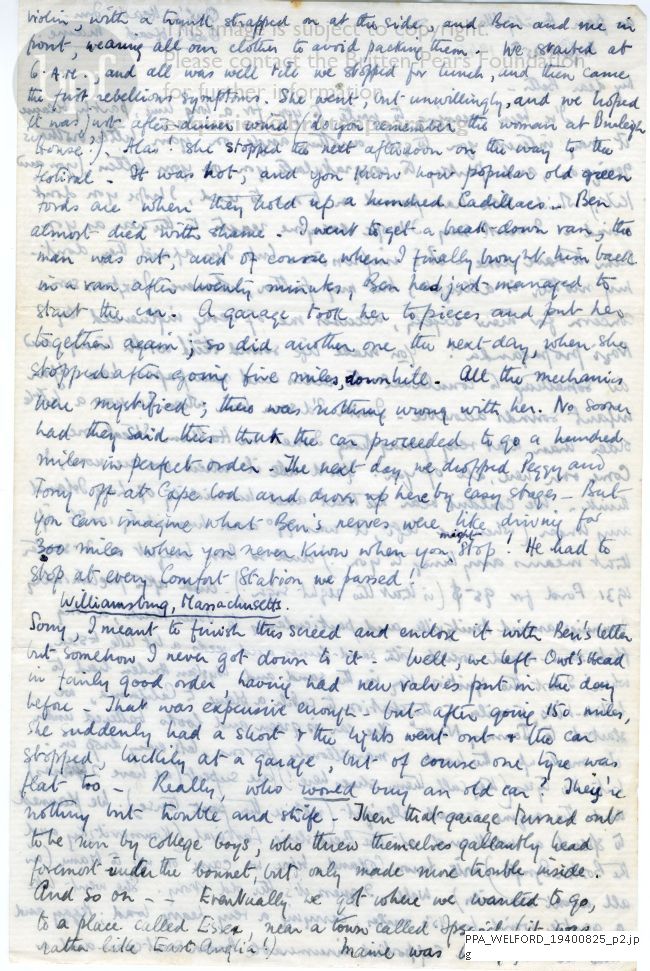 violin, with a trunk strapped on at the side, and Ben and me in
front, wearing all our clothes to avoid packing them. We started at
6 A.M., and all was well till we stopped for lunch, and then came
the first rebellious symptoms. She went, but unwillingly, and we hoped
it was just after-dinner wind (do you remember the woman at Burleigh
House!). Alas! She stopped the next afternoon on the way to the
festival. It was hot, and you know how popular old green
Fords are when they hold up a hundred Cadillacs. Ben
almost died with shame. I went to get a break-down van; the
man was out, and of course when I finally brought him back
in a van after twenty minutes, Ben had just managed to
start the car. A garage took her to pieces and put her
together again; so did another one the next day, when she
stopped after going five miles downhill. All the mechanics
were mystified; there was nothing wrong with her. No sooner
had they said this than the car proceeded to go a hundred
miles in perfect order. The next day we dropped Peggy and
Tony off at Cape Cod and drove up here by easy stages - But
you can imagine what Ben's nerves were like driving for
300 miles when you never know when you might stop! He had to
stop at every Comfort Station we passed!
Williamsburg, Massachusetts.
Sorry, I meant to finish this screed and enclose it with Ben's letter
but somehow I never got down to it - Well, we left Owl's Head
in fairly good order, having had new valves put in the day
before - That was expensive enough - but after going 150 miles,
she suddenly had a short & the lights went out & the car
stopped, luckily at a garage, but of course one tyre was
flat too - Really, who would buy an old car? They're
nothing but trouble and strife - Then that garage turned out
to be run by college boys, who threw themselves gallantly head
foremost under the bonnet, but only made more trouble inside.
And so on - - Eventually we got where we wanted to go,
to a place called Essex, near a town called Ipswich (it was
rather like East Anglia!) Maine was
This image is subject to copyright.
Please contact the Britten-Pears Foundation
for further information.
PPA_WELFORD_19400825_p2.jp
g